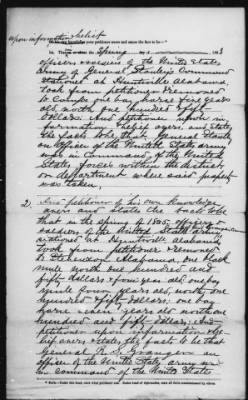 upon information & belief
your petitioner avers and states the fact to be:
1st. That in the Spring 1863
officers & soldiers of the United States
Army of General Stanley's Command
stationed at Huntsville Alabama,
took from petitioner & removed
to Camp one bay horse five years
old worth one hundred & fifty
dollars. And petitioner upon in-
formation & belief avers and states,
the fact to be that General Stanley
an officer of the United States army
was in Command of the United
States forces within the district
or department where said property
was taken,
2 And petitioner of his own knowledge
avers and states the fact to be
that in the Spring of 1865, officers &
soldiers of the United States army
stationed at Huntsville Alabama
took from petitioner & removed
to Stevenson Alabama, one black
mule worth one hundred and
fifty dollars & four years old, one bay
mule four years old, worth one
hundred & fifty dollars; one bay
horse seven years old worth one
hundred and fifty dollars: And
petitioner upon information & be-
lief avers & states, the facts to be that
General R. S. Granger an
officer of the United States army was
in command of the United States